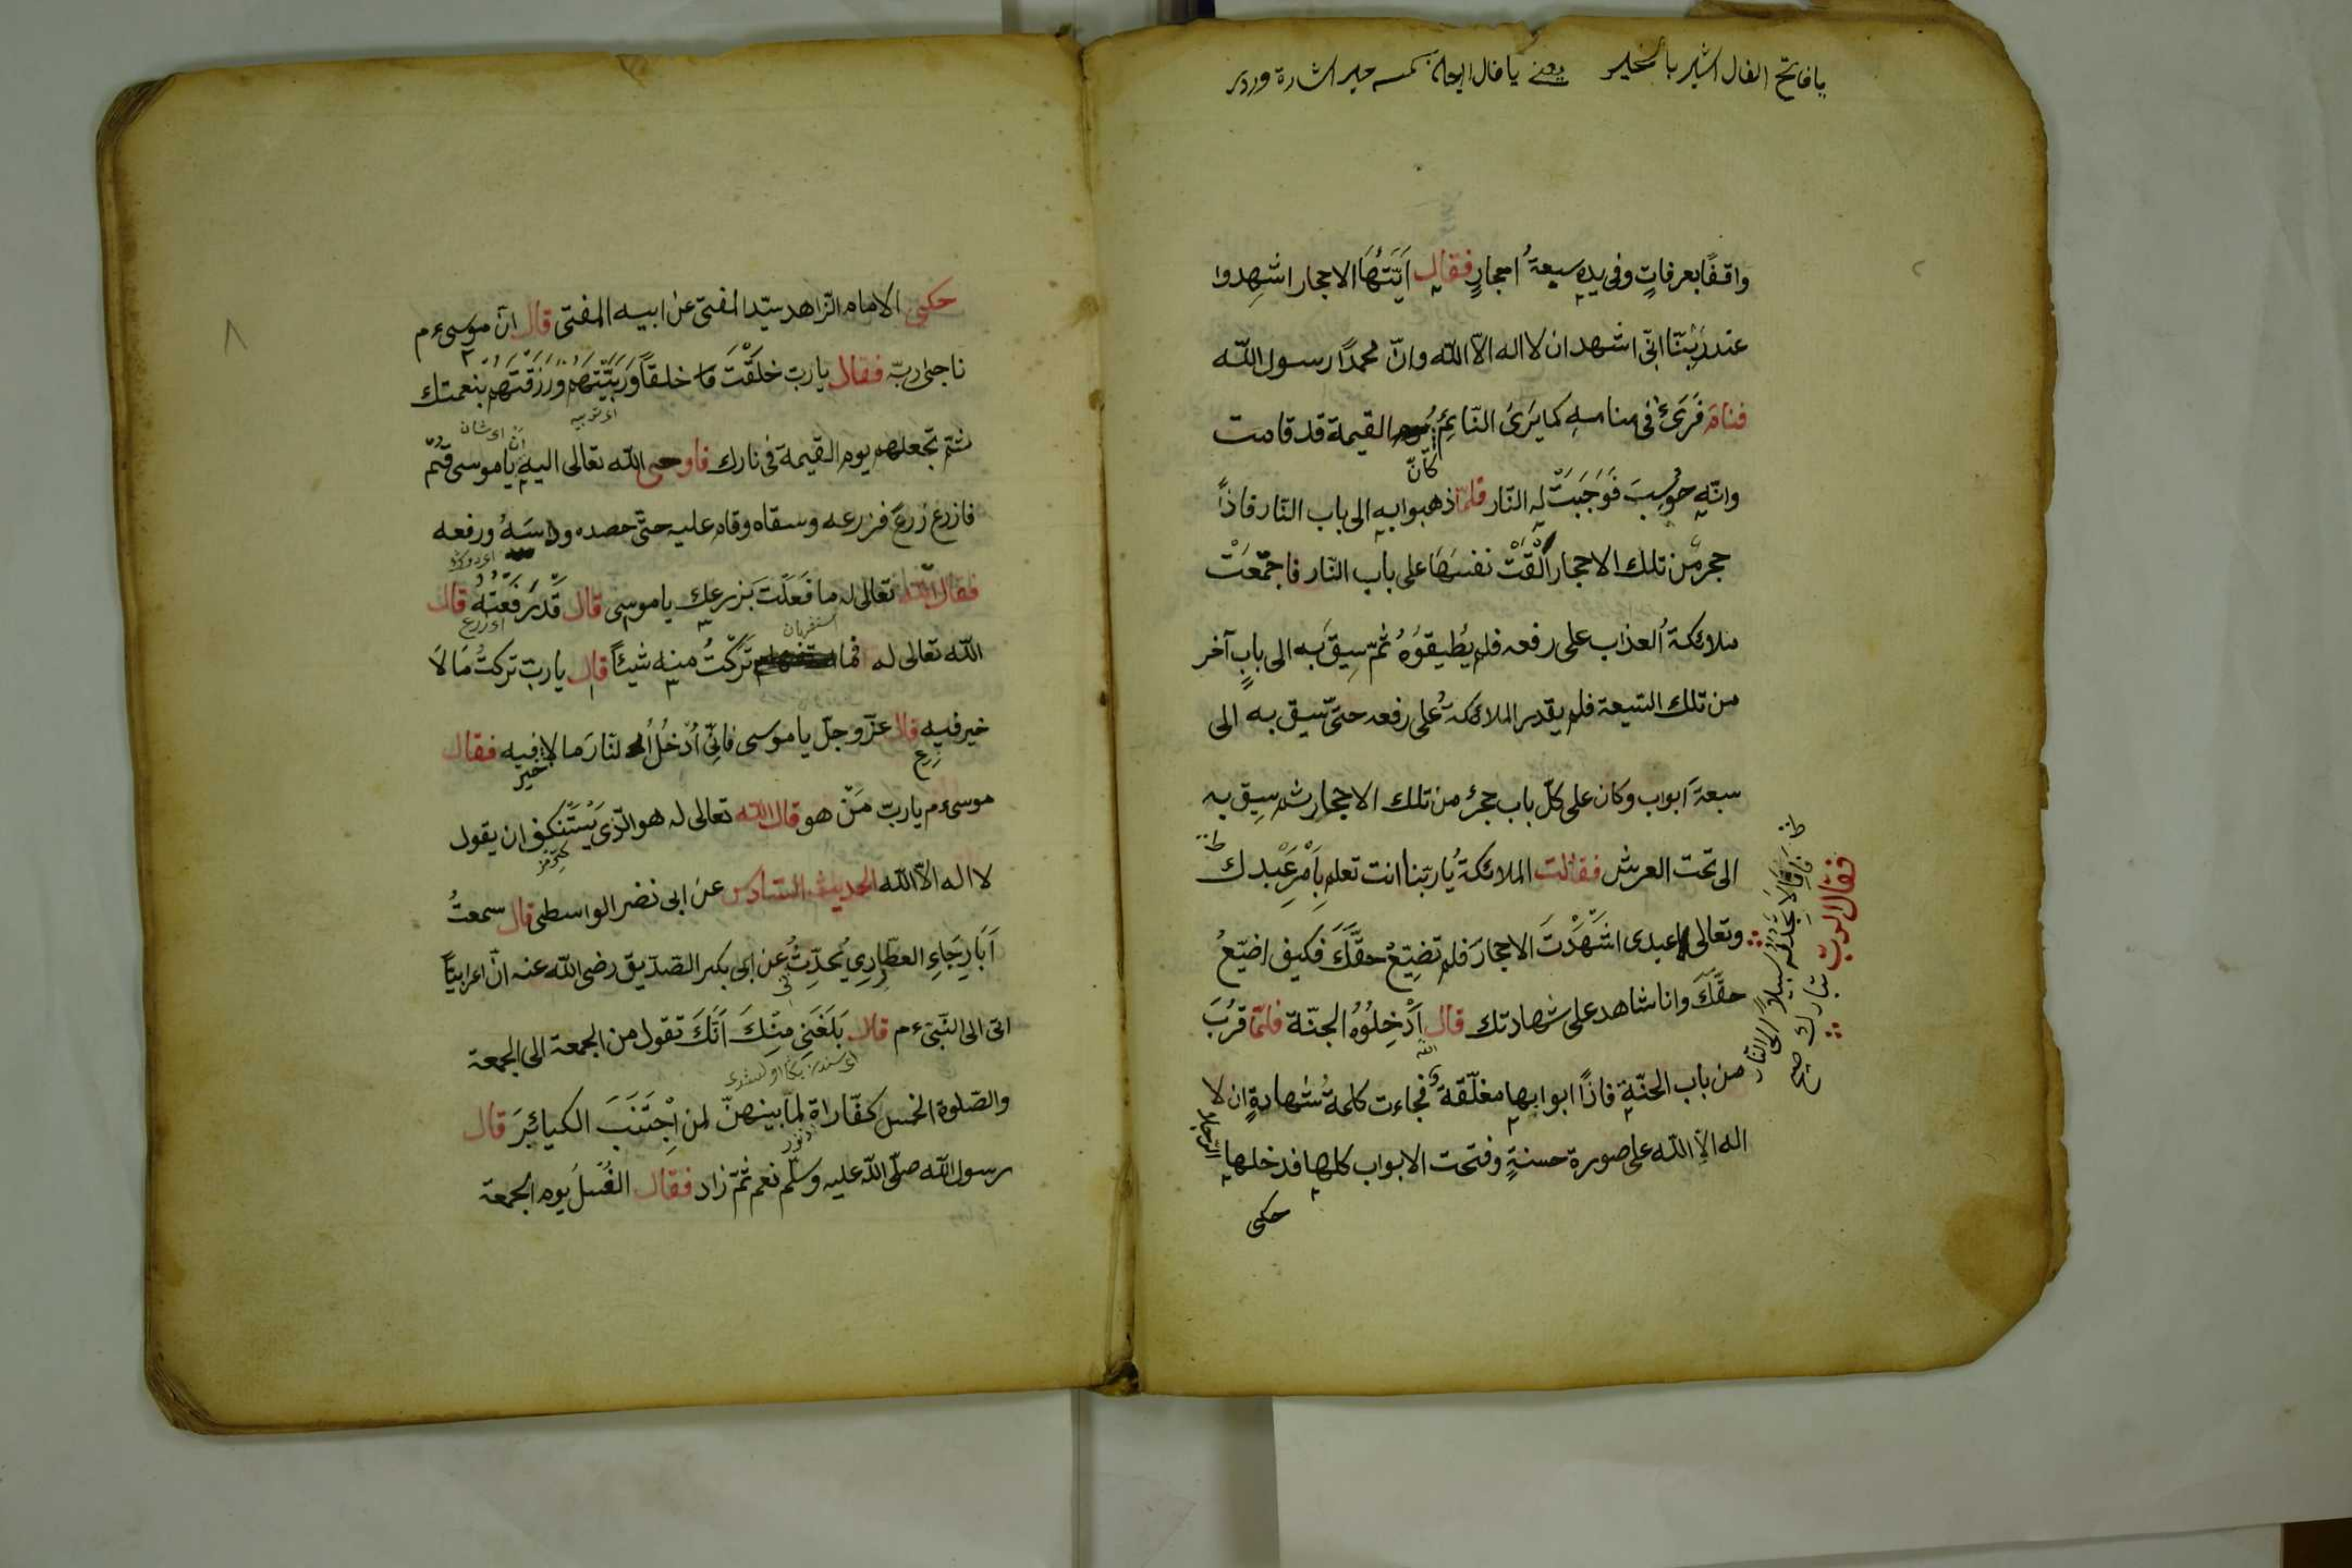 يا فاتح الفال اشير بالخير يعنى يا فال
واقفًا بعرفاتٍ وفى يده سبعةُ احجارٍ فقال اَيَّتُهَا الاحجار اشهِدوا
عند ربّنا انّى اشهد ان لا اله الّا الله وانّ محمدًا رسول الله
فنام فَرَىَ فى منامه كما يَرَىُ النّائِمُ القيمة قد قامت
كأنّ
وانّه حوُسِبَ فَوَجَبَتْ له النّار فلمّا ذهبوا به الى باب النّار فاذاً
حجر مّن تلك الاحجار اَلْقَتْ نفسَهَا على باب النّار فاجتمَعَتْ
ملائكةُ العذاب على رفعه فلم يُطيقوُهُ ثمّ سِيقَ به الى بابٍ آخر
من تلك السّبعة فلم يقدر الملائكةُ على رفعه حتّى سيق به الى
سبعةَ ابواب وكان على كلّ باب حجرٌ من تلك الاحجار ثم سِيق به
الى تحت العرش فقالت الملائكةُ يا ربّنا انت تعلم بِاَمْرِ عَبْدك
فقال الربّ تبارك
فانّا لا نجد له سبيلاً الى النّار
وتعالى عبدى اشَهَّدْتَ الاحجارَ فلم تضِيّعْ حقَّكَ فكيف اضيّعُ
حقَّكَ وانا شاهد على شهادتك قال اَدْخِلُوُهُ الجنّة فلمّا قرُبَ
الله
من باب الجنّةِ فاذاً ابوابها مغلّقة فجاءت كلمةُ شهادةِ ان لا
اله الّا الله على صورة حسنةٍ وفتحت الابواب كلها فدخلها
الرّجل
حكى
٨
حكى الامام الزّاهد سيّد المفتى عن ابيه المفتى قال انّ موسى ءم
ناجى ربّه فقال يا ربّ خلقْتَ خلقاً وَرَبَّيْتَهُم وَرَزَقْتَهُم بنعمتك
ثمّ تجعلهم يوم القيمة فى نارك فاوحى الله تعالى اليه يا موسى قُمْ
فازرع زرعَ فزرعه وسقاه وقام عليه حتّى حصده وداسَهُ ورفعه
فقال الله تعالى له ما فَعَلْتَ بَزرعك يا موسى قال قَدْ رَفَعْتُهُ قال
اى زرع
الله تعالى له فما تَرَكْتُ منه شيئاً قال يا ربّ تركتُ مَا لَا
خير فيه قال عزّ وجلّ يا موسى فانّى اُدْخلُ النّارَ ما لا فيه فقال
خير
موسى ءم يا ربّ مَنْ هو قال الله تعالى له هو الّذى يَسْتَنْكِف ان يقول
لا اله الّا الله الحديث السّادس عن ابى نضر الواسطى قال سمعتُ
اَبَا رِجَاءِ العطّارِدِى يُحدِّثُ عن ابى بكر الصّدّيق رضى الله عنه انّ اعرابيّاً
اتى الى النّبىّ ءم قال بَلَغَنِى مِنْكَ اَنَّكَ تقول من الجمعة الى الجمعة
والصّلوة الخمس كفّاراة لِمَا بينهنّ لمن اِجْتَنَبَ الكبائِرَ قال
رسول الله صلّى الله عليه وسلّم نعم ثمّ زاد فقال الغُسلُ يوم الجمعة